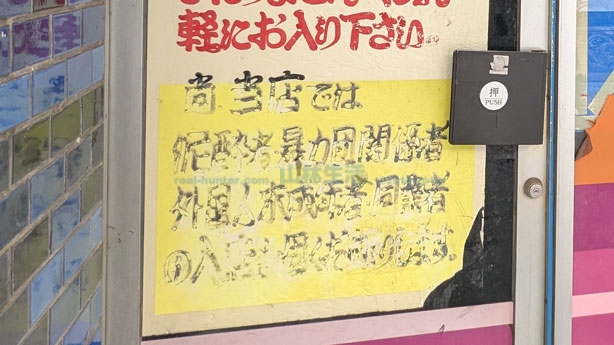 軽にお入り下さい。
尚 当店では
泥酔者暴力団関係者
外国人未成年者同業者
の入店は固くお断りします。
押
PUSH
real-hunter.com